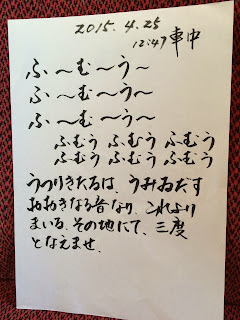 2015.4.25
12:47 車中
ふ〜む〜う〜
ふ〜む〜う〜
ふ〜む〜う〜
ふむう ふむう ふむう
ふむう ふむう ふむう
うつりきたるは、うみゐだす
おおきなる音なり、これふり
まいる、その地にて、三度
となえませ、